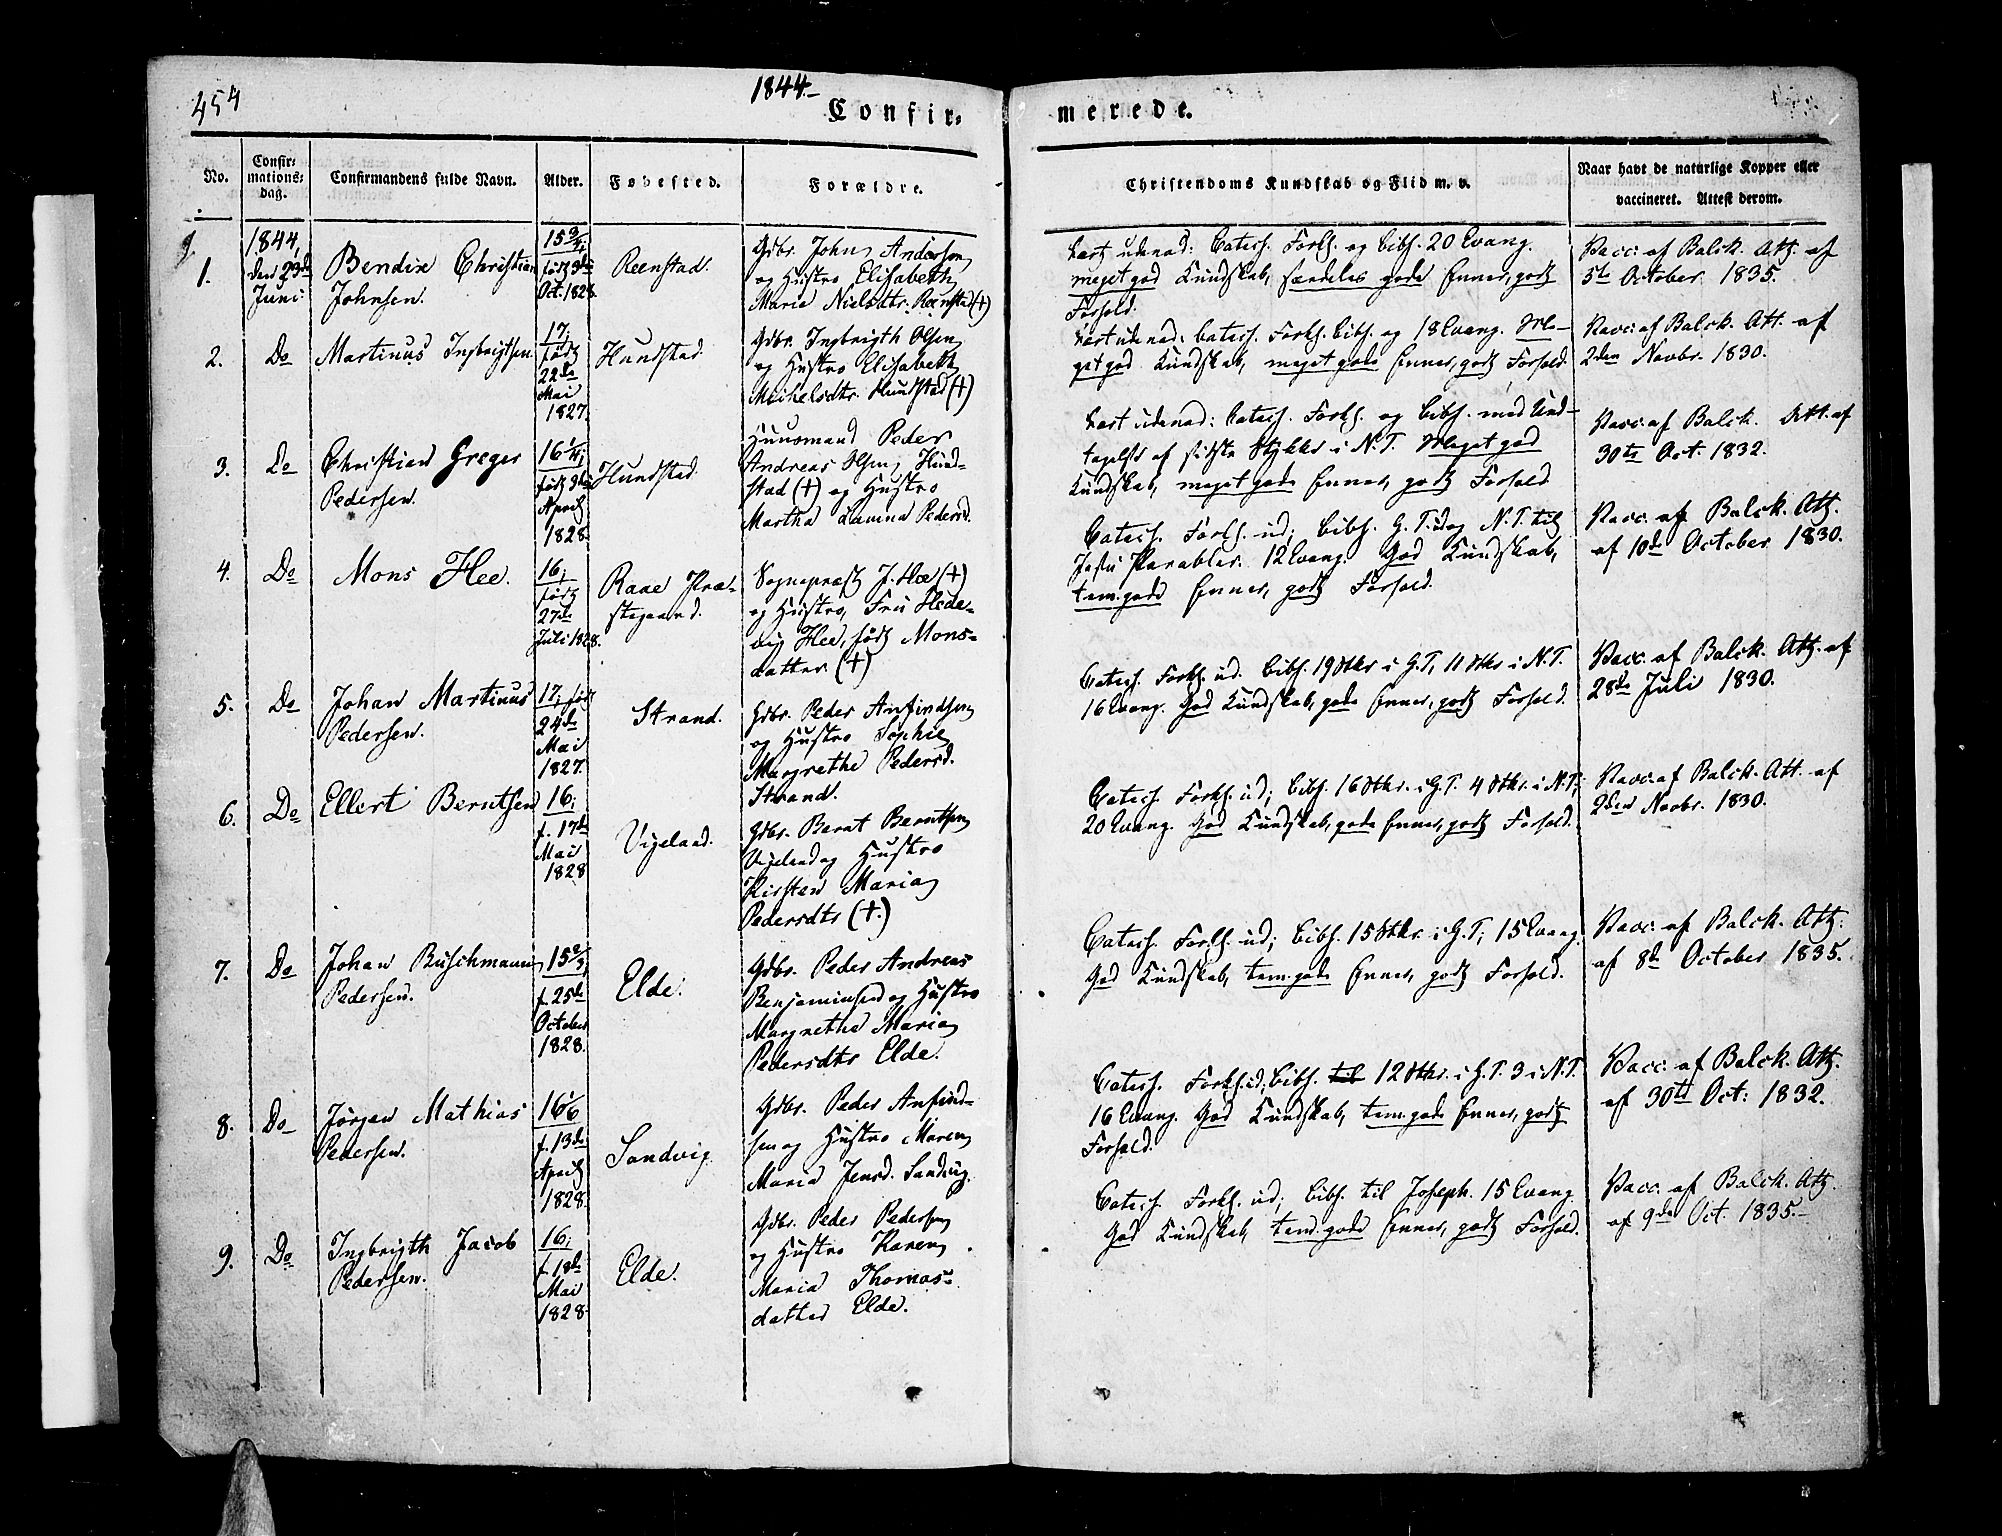 454
1844.-
Confir-
merede.
No.
Confir-
mations-
dag.
Confirmandens fulde Navn.
Alder.
Fødested.
Forældre.
Christendoms Kundskab og Flid m. v.
Naar havt de naturlige Kopper eller
vaccineret. Attest derom.
1.
1844,
den 23de
Juni
Bendix Christian
Johnsen.
15 3/4;
født 3die
Oct. 1828.
Reenstad.
Gdbr. John Andersen
og Hustro Elisabeth
Maria Nielsdtr. Reenstad (+)
Lært udenad: Catech. Forkl. og Bibh. 20 Evang.
meget god Kundskab, særdeles gode Evner, godt
Forhold.
Vacc. af Balck. Att. af
5te October 1835.
2.
Do
Martinus Ingbrigtsen
17;
født
22de
Mai
1827.
Hundstad.
Gdbr. Ingbrigth Olsen
og Hustro Elisabeth
Michelsdtr. Hundstad (+)
Lært udenad: Catech. Forkl. Bibh. og 18 Evang. Me-
get god Kundskab, meget gode Evner, godt Forhold
Vacc. af Balck. Att. af
2den Novbr. 1830.
3.
Do
Christian Greger
Pedersen.
16 1/4;
født 3die
April
1828.
Hundstad.
Huusmand Peder
Andreas Olsen Hund-
stad (+) og Hustro
Martha Lavina Pedersd.
Lært udenad: Catech. Forkl. og Bibh. med Und-
tagelse af sidste Stykke i N.T. Meget god
Kundskab, meget gode Evner, godt Forhold
Vacc. af Balck. Att. af
30te Oct. 1832.
4.
Do
Mons Hee.
16;
født
27de
Juli 1828.
Raae Præ-
stegaard.
Sognepræst J. Hee (+)
og Hustro, Fru Hede-
vig Hee, født Mons-
datter (+)
Catech. Forkl. ud; Bibh. G.T. ud og N.T. til
Jesu Parabler. 12 Evang. God Kundskab,
tem. gode Evner, godt Forhold.
Vacc. af Balck. Att.
af 10de October 1830.
5.
Do
Johan Martinus
Pedersen.
17; født
24de
Mai
1827.
Strand.
Gdbr. Peder Anfindsen
og Hustro Sophie
Margrethe Pedersd.
Strand.
Catech. Forkl. ud. Bibh. 19 Stkr i G.T, 11 Stkr i N.T.
16 Evang. God Kundskab, gode Evner, godt Forhold.
Vacc. af Balck. Att. af
28de Juli 1830.
6.
Do
Ellert Berntsen
16;
f. 17de
Mai
1828
Vigeland.
Gdbr. Bernt Berntsen
Vigeland og Hustro
Kirsten Maria
Pedersdtr (+.)
Catech. Forkl. ud; Bibh. 16 Stkr. i G.T. 4 Stkr. i N.T;
20 Evang. God Kundskab, gode Evner, godt Forhold.
Vacc. af Balck. Att. af
2den Novbr. 1830.
7.
Do
Johan Buschmann
Pedersen.
15 2/3;
f. 25de
October
1828.
Elde.
Gdbr. Peder Andreas
Benjaminsen og Hustro
Margrethe Maria
Pedersdtr Elde.
Catech. Forkl. ud; Bibh. 15 Stkr. i G.T; 15 Evang.
God Kundskab, tem. gode Evner, godt Forhold.
Vacc. af Balck. Att.
af 8de October 1835.
8.
Do
Jørgen Mathias
Pedersen.
16 1/6
f. 13de
April
1828.
Sandvig
Gdbr. Peder Anfind-
sen og Hustro Maren
Maria Jensd. Sandvig.
Catech. Forkl. ud; Bibh. til 12 Stkr. i G.T. 3 i N.T.
16 Evang. God Kundskab, tem. gode Evner, godt
Forhold.
Vacc. af Balck. Att.
af 30te Oct: 1832.
9.
Do
Ingbrigth Jacob
Pedersen.
16;
f. 18de
Mai
1828.
Elde.
Gdbr. Peder Pedersen
og Hustro Karen
Maria Thomas-
datter Elde.
Catech. Forkl. ud; Bibh. til Joseph. 15 Evang.
God Kundskab, tem. gode Evner, godt Forhold.
Vacc. af Balck. Att.
af 9de Oct. 1835.-